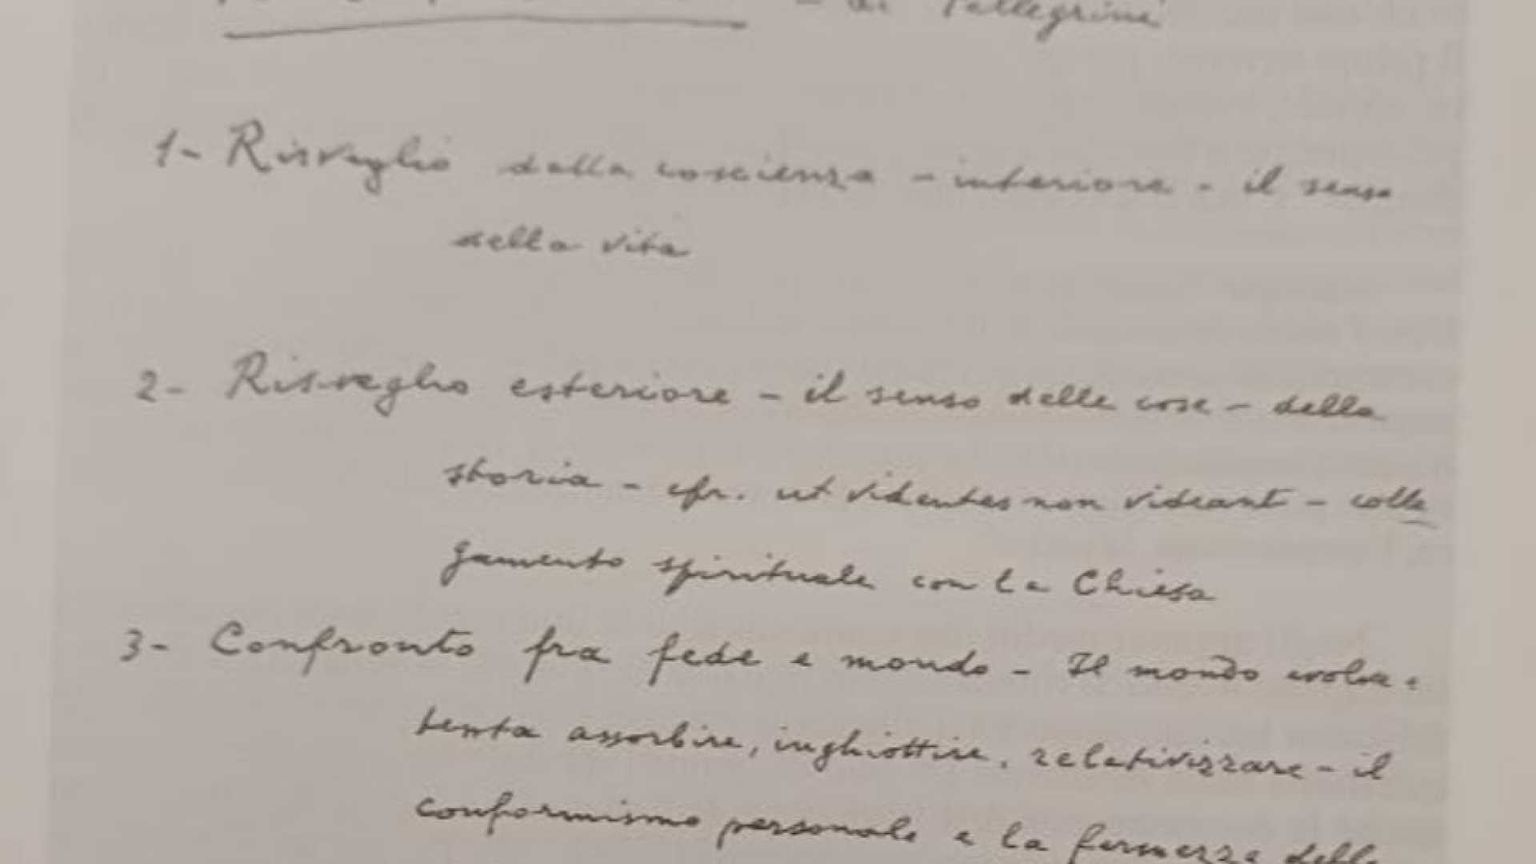 - di Pellegrini
1- Risveglio della coscienza - interiore - il senso
della vita
2- Risveglio esteriore - il senso delle cose - della
storia - cfr. ut videntes non videant - colle
gamento spirituale con la Chiesa
3- Confronto fra fede e mondo - Il mondo evolve e
tenta assorbire, inghiottire, relativizzare - il
conformismo personale e la fermezza della